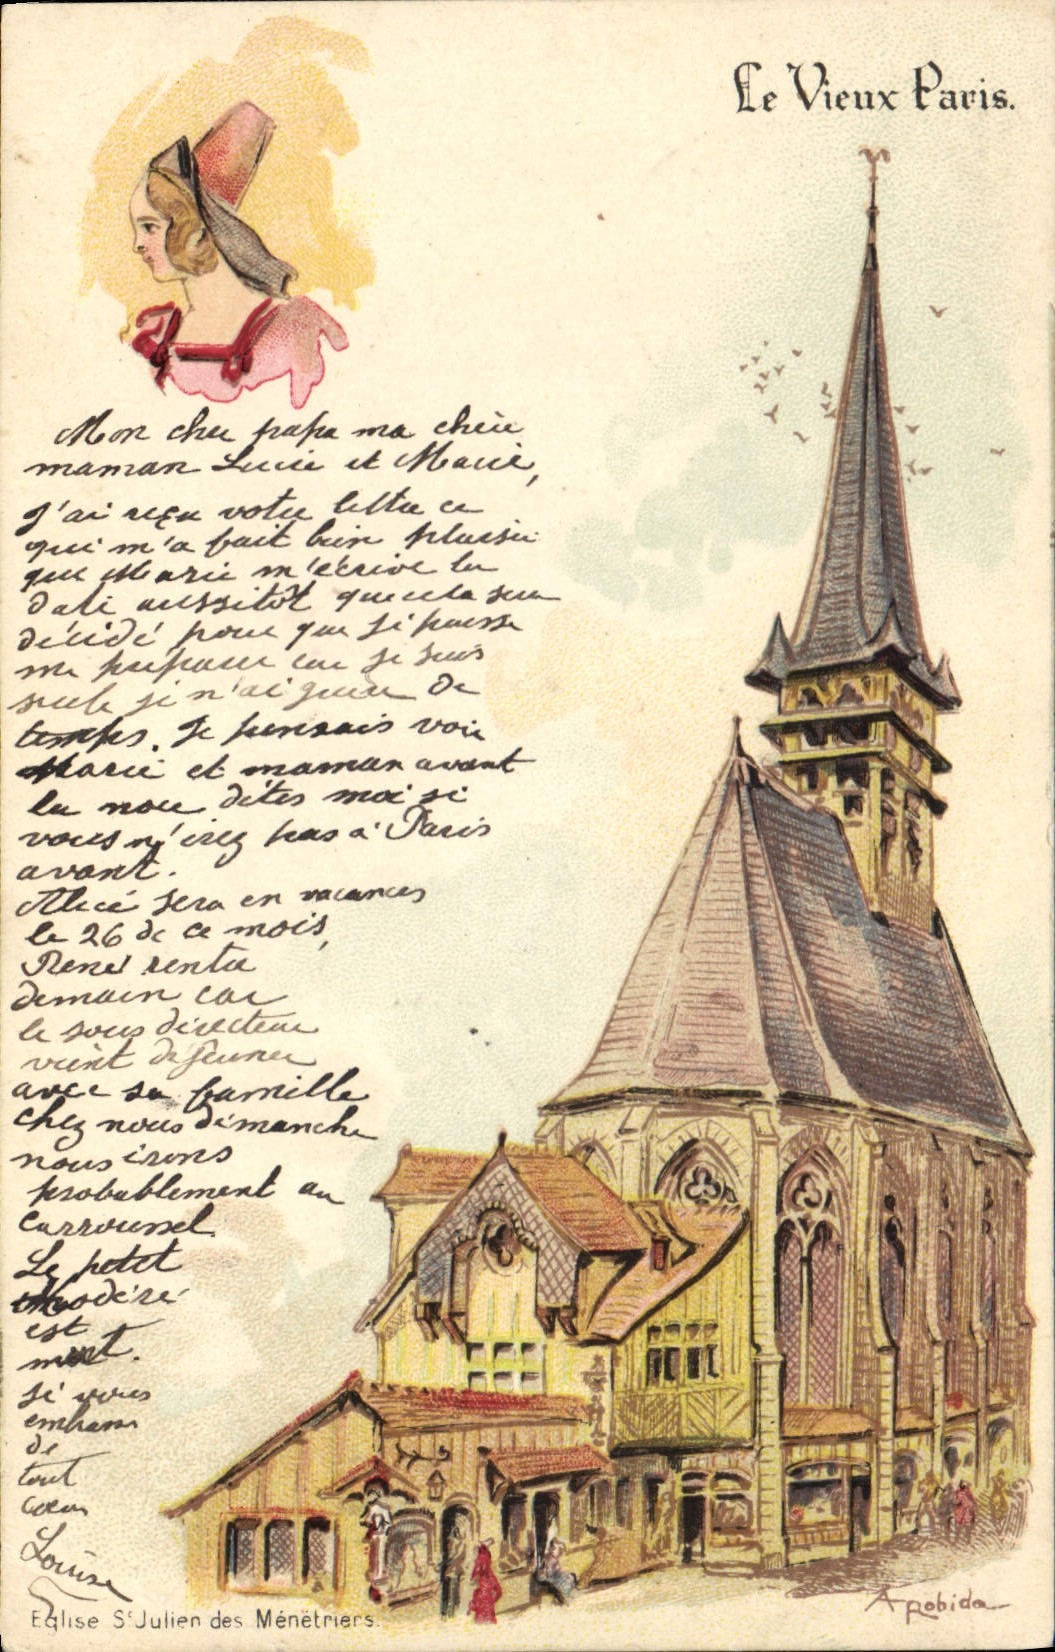 Le Vieux Paris.
Mon cher papa ma chère
maman Lucie et Marie,
J'ai reçu votre lettre ce
qui m'a fait bien plaisir
que Marie m'écrive la
date aussitôt que cela sera
décidé pour que je puisse
me préparer car je suis
seule je n'ai guère de
temps. Je pensais voir
Marie et maman avant
la noce dites moi si
vous n'irez pas à Paris
avant.
Alice sera en vacances
le 26 de ce mois,
René rentre
demain car
le sous directeur
vient déjeuner
avec sa famille
chez nous dimanche
nous irons
probablement au
Carroussel
Le petit
est
mort.
je vous
embrasse
de
tout
cœur
Louise
Eglise St Julien des Ménétriers.
A Robida